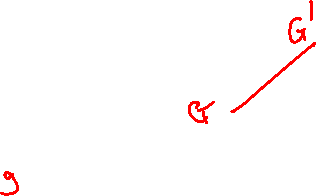 G'
G
g